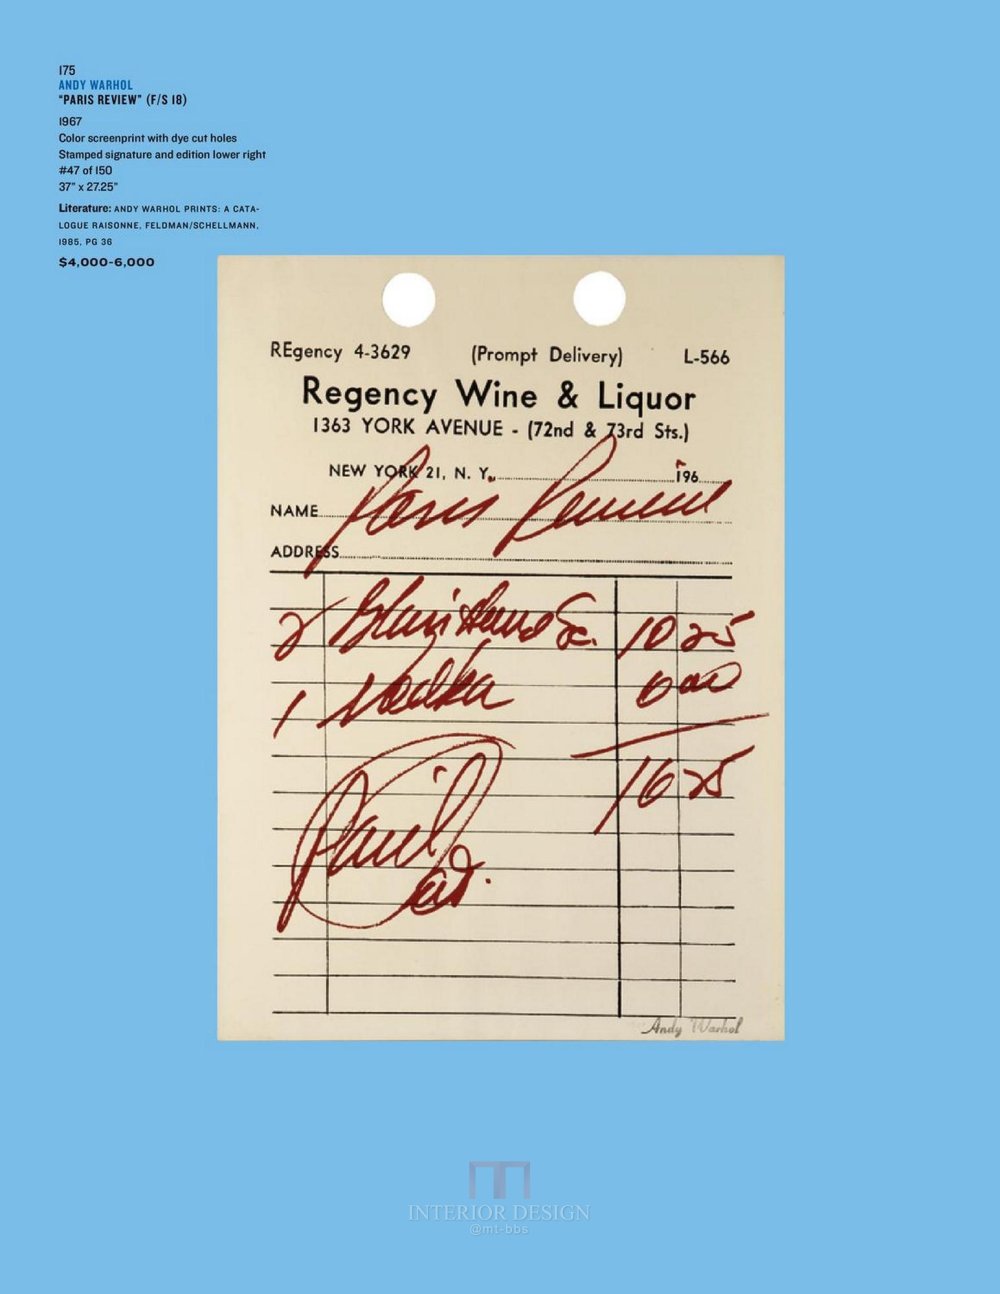 175
ANDY WARHOL
"PARIS REVIEW" (F/S 18)
1967
Color screenprint with dye cut holes
Stamped signature and edition lower right
#47 of 150
37" x 27.25"
Literature: ANDY WARHOL PRINTS: A CATA-
LOGUE RAISONNE, FELDMAN/SCHELLMANN,
1985, PG 36
$4,000-6,000
REgency 4-3629 (Prompt Delivery) L-566
Regency Wine & Liquor
1363 YORK AVENUE - (72nd & 73rd Sts.)
NEW YORK 21, N. Y. 196
NAME Paris Review
ADDRESS
2 Sc. 10 25
1 Vodka 6 00
16 25
Paid
Andy Warhol
INTERIOR DESIGN
@mt-bbs